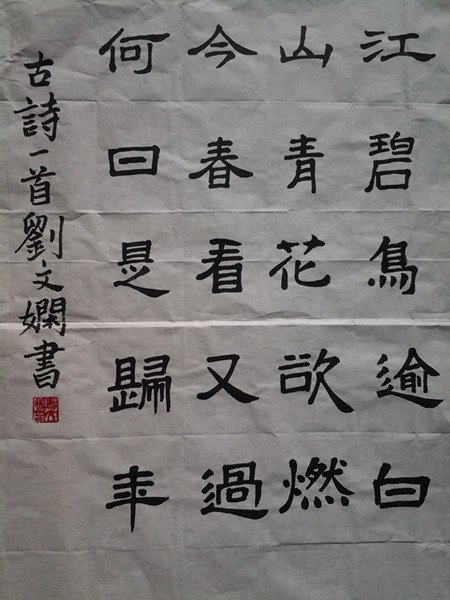 江碧鳥逾白
山青花欲燃
今春看又過
何日是歸年
古詩一首劉文嫻書